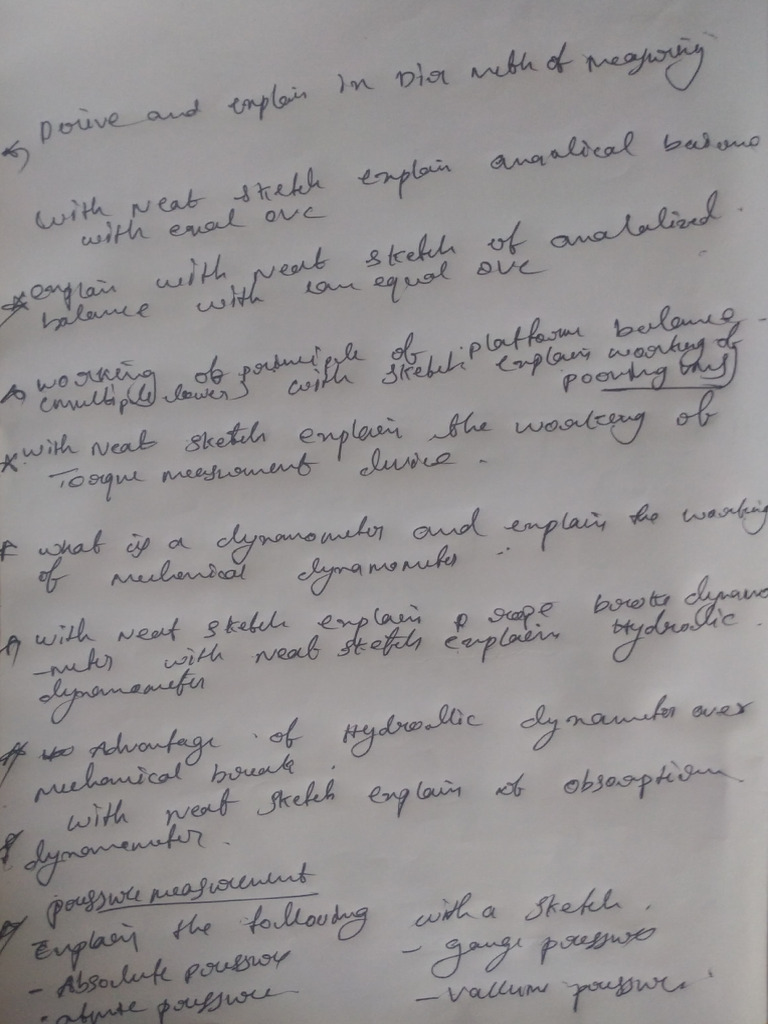 Derive and explain in Dia meth of measuring
with neat sketch explain analical balance
with equal arc
explain with neat sketch of analalized
balance with un equal arc
working of principle of platform balance
(multiple lever) with sketch explain working of
proving ring
with neat sketch explain the working of
Torque measurment device.
what is a dynamometer and explain the working
of mechanical dynamometer
with neat sketch explain rope brake dynamo
-meter with neat sketch explain Hydrolic
dynamometer
Advantage of Hydrollic dynameter over
mechanical break.
with neat sketch explain of absorption
dynamometer.
pressure measurement
Explain the following with a sketch.
- Absolute pressure - gauge pressure
pressure - Vaccume pressure